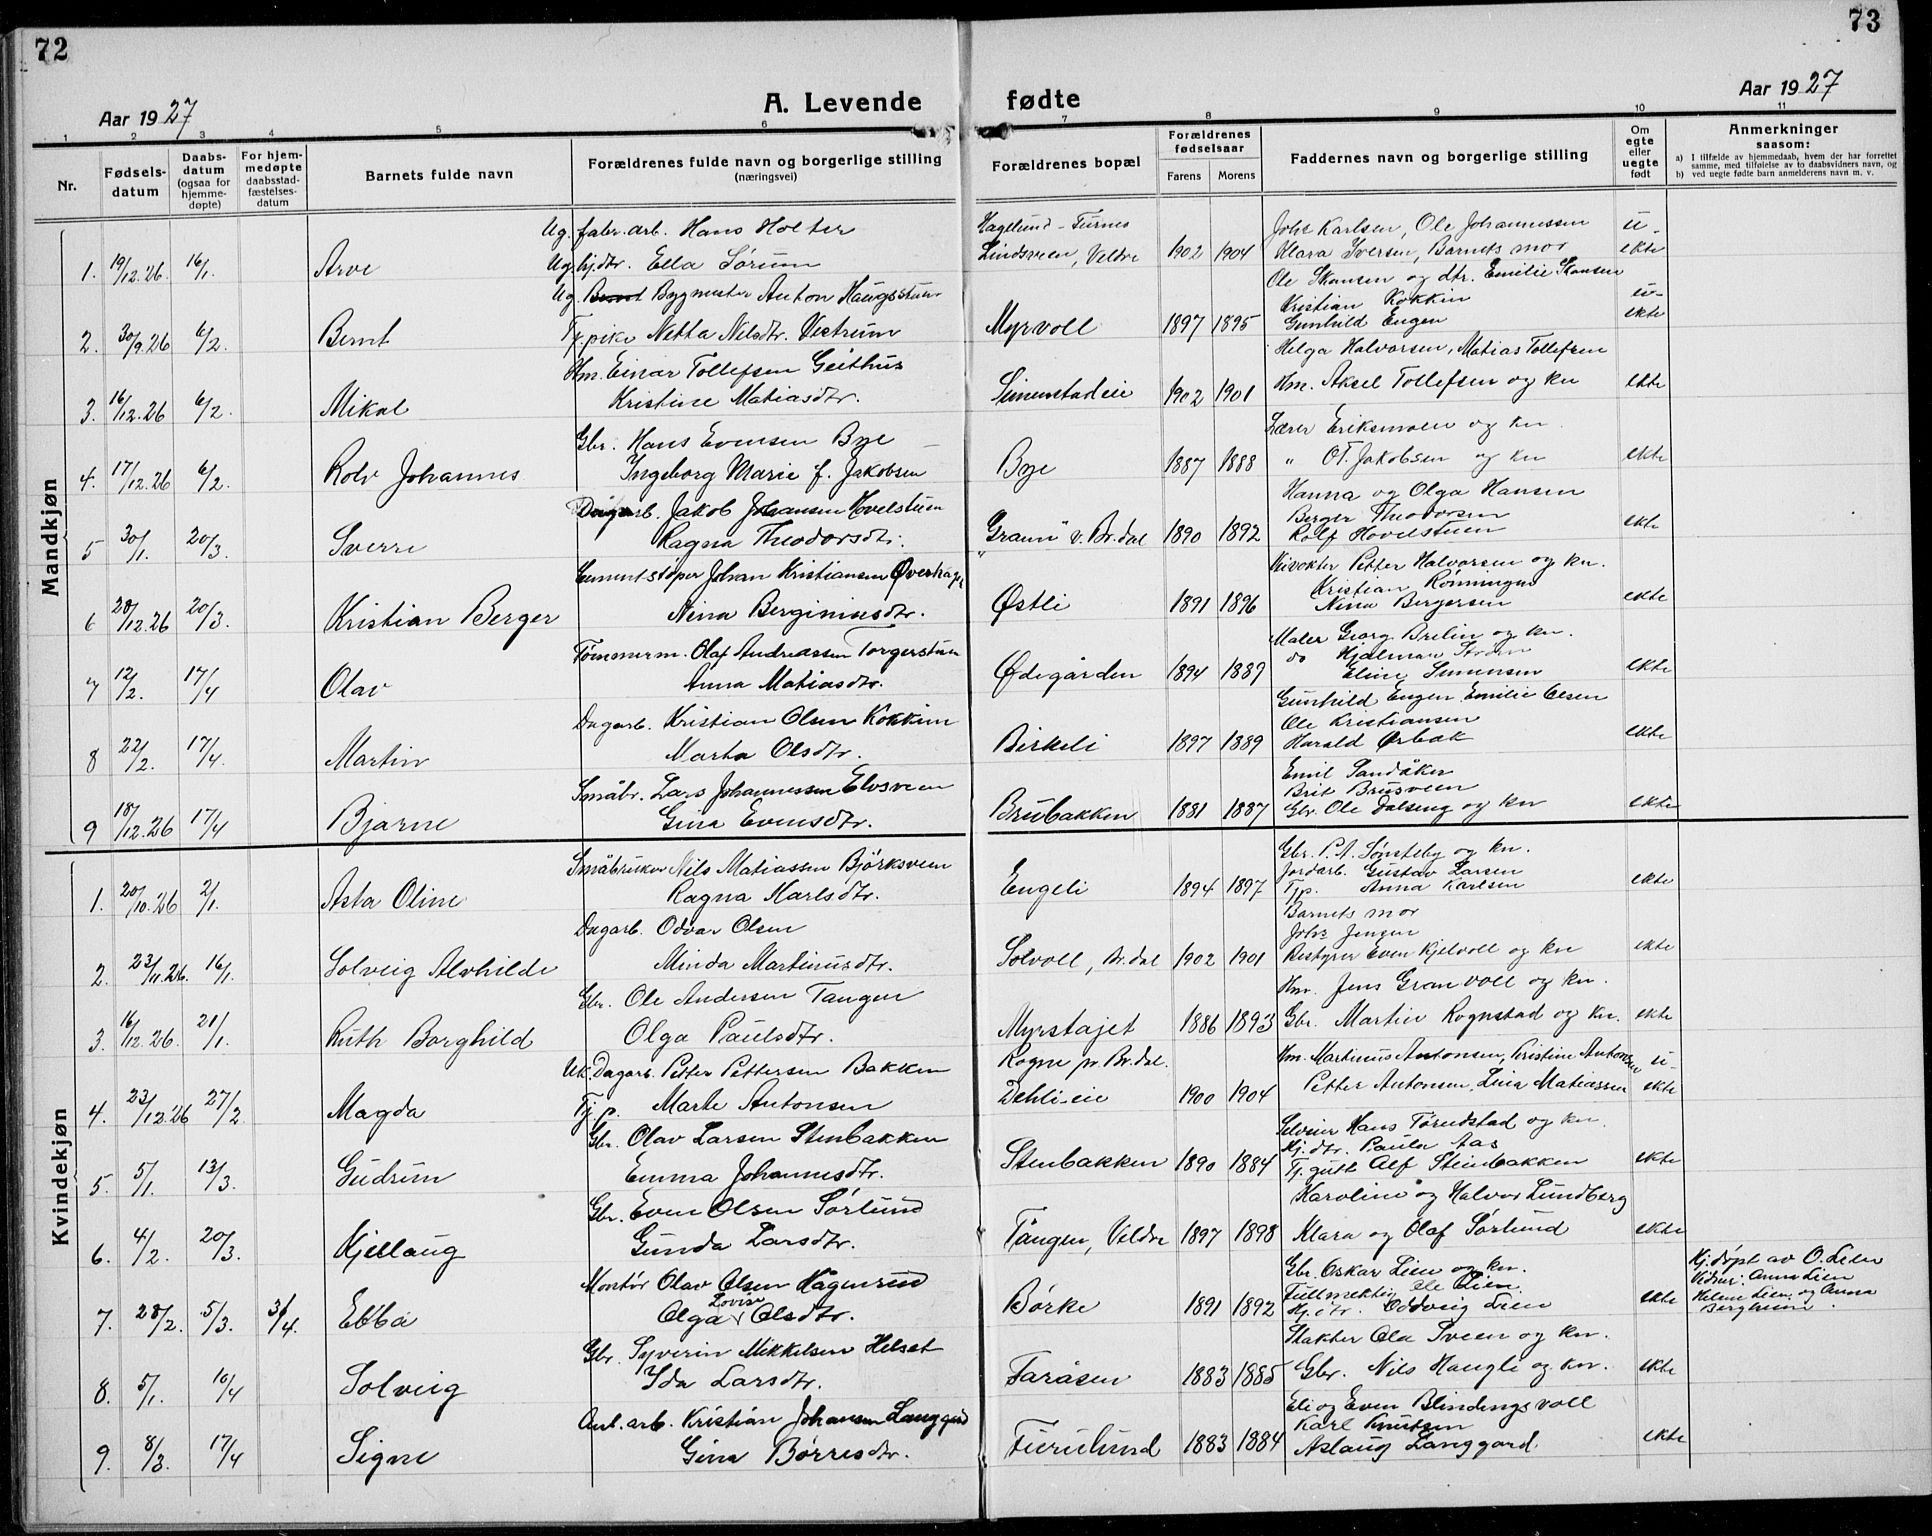 72
73
Aar 1927
A. Levende fødte
Aar 1927
1 2 3 4 5 6 7 8 9 10 11
Nr.
Fødsels-datum
Daabs-datum (ogsaa for hjemme-døpte)
For hjem-medøpte daabsstad-fæstelses-datum
Barnets fulde navn
Forældrenes fulde navn og borgerlige stilling (næringsvei)
Forældrenes bopæl
Forældrenes fødselsaar
Farens Morens
Faddernes navn og borgerlige stilling
Om egte eller uegte født
Anmerkninger saasom:
a) I tilfælde av hjemmedaab, hvem der har forrettet samme, med tilføielse av to daabsvidners navn, og
b) ved uegte fødte barn anmelderens navn m. v.
Mandkjøn
Ug. fabr. arb. Hans Holter Hagelund - Furnes Johs Karlsen, Ole Johannessen u-
1. 19/12.26. 16/1. Arve Ug. hj.dtr. Ella Sørum Lindsveen, Veldre 1902 1904 Klara Iversen, Barnets mor ekte
Ug. Bygmester Anton Haugsstuen Ole Skansen og dtr. Emilie Skansen
Kristian Kokkin u-
2. 30/9.26 6/2. Bernt Tj.pike Netta Nilsdtr. Vestrum Myrvoll 1897 1895 Gunhild Engen ekte
Hm. Einar Tollefsen Geithus Helga Halvorsen, Matias Tollefsen
3. 16/12.26 6/2. Mikal Kristine Matiasdtr. Simenstadeie 1902 1901 Hm. Aksel Tollefsen og kn ekte
Gbr. Hans Evensen Bye Lærer Eriksmoen og kn.
4. 17/12.26 6/2. Rolv Johannes Ingeborg Marie f. Jakobsen Bye 1887 1888 " O.T. Jakobsen og kn ekte
Hanna og Olga Hansen
Dagarb. Jakob Johansen Hovelstuen Berger Theodorsen
5 30/1. 20/3. Sverre Ragna Theodorsdtr. "Graum" v. Br.dal 1890 1892 Rolf Hovelstuen ekte
Cementstøper Johan Kristiansen Øverhage Petter Halvorsen og kn.
Kristian Rønningen
6 28/12.26 20/3. Kristian Berger Nina Berginiusdtr. Østli 1891 1896 Nina Bergersen ekte
Tømmerm. Olaf Andreassen Torgerstuen Maler Georg Brelin og kn.
do Hjalmar Strøm
7 12/2. 17/4 Olav Anna Matiasdtr. Ødegården 1894 1889 Eline Simensen ekte
Gunhild Engen, Emilie Olsen
Dagarb. Kristian Olsen Kokkim Ole Kristiansen
8 22/2. 17/4. Martin Marta Olsdtr. Birkeli 1897 1889 Harald Ørbak ekte
Emil Sandåker
Småbr. Lars Johannessen Elvsveen Brit Brusveen
9 18/12.26 17/4 Bjarne Gina Evensdtr. Brubakken 1881 1887 Gbr. Ole Dalseng og kn ekte
Kvindekjøn
Småbruker Nils Matiassen Bjørksveen Gbr. P.A. Sønsteby og kn.
Jordarb. Gustav Larsen
1. 20/10.26 2/1. Asta Oline Ragna Karlsdtr. Engeli 1894 1897 Tjp. Anna Karlsen ekte
Barnets mor
Dagarb. Odvar Olsen Johs Jensen
2. 23/11.26. 16/1. Solveig Alvhilde Minda Martinusdtr. Solvoll, Br.dal 1902 1901 Bestyrer Even Kjelvoll og kn ekte
Gbr. Ole Andersen Tangen Hm. Jens Granvoll og kn.
3. 16/12.26. 21/1. Ruth Borghild Olga Paulsdtr. Myrstajet 1886 1893 Gbr. Martin Rognstad og kn. ekte
Uk. Dagarb. Petter Pettersen Bakken Rogne pr Br.dal. Hm. Martinus Antonsen, Kristine Antonsen u-
4. 23/12.26 27/2. Magda Tj.p. Marte Antonsen Dehli-eie 1900 1904 Petter Antonsen, Lina Matiassen ekte
Gbr. Olav Larsen Stenbakken Selveier Hans Tørudstad og kn.
Hj.dtr. Paula Aas
5. 5/1. 13/3. Gudrun Emma Johannesdtr. Stenbakken 1890 1884 Tj.gutt Alf Steinbakken ekte
Gbr. Even Olsen Sørlund Karoline og Halvor Lundberg
6. 4/2. 20/3. Kjellaug Gunda Larsdtr. Tangen, Veldre 1897 1898 Klara og Olaf Sørlund ekte
Montør Olav Olsen Hagensrud Gbr. Oskar Lien og kn. Hj.døpt av O. Lien
Lovise Fullmektig Ole Lien Vidner: Anna Lien
7. 28/2. 5/3. 31/4. Ebba Olga Olsdtr. Børke 1891 1892 Hj.dtr. Oddveig Lien ekte Helene Lien og Anna Bergheim
Gbr. Syverin Mikkelsen Helset Stakter Ola Sveen og kn.
8. 5/1. 10/4 Solveig Ida Larsdtr. Faråsen 1883 1885 Gbr. Nils Haugli og kn. ekte
Anl. arb. Kristian Johansen Langgård Eli og Even Blindingsvoll
Karl Knutsen
9. 8/3. 17/4 Signe Gina Børresdtr. Furulund 1883 1884 Aslaug Langgard. ekte